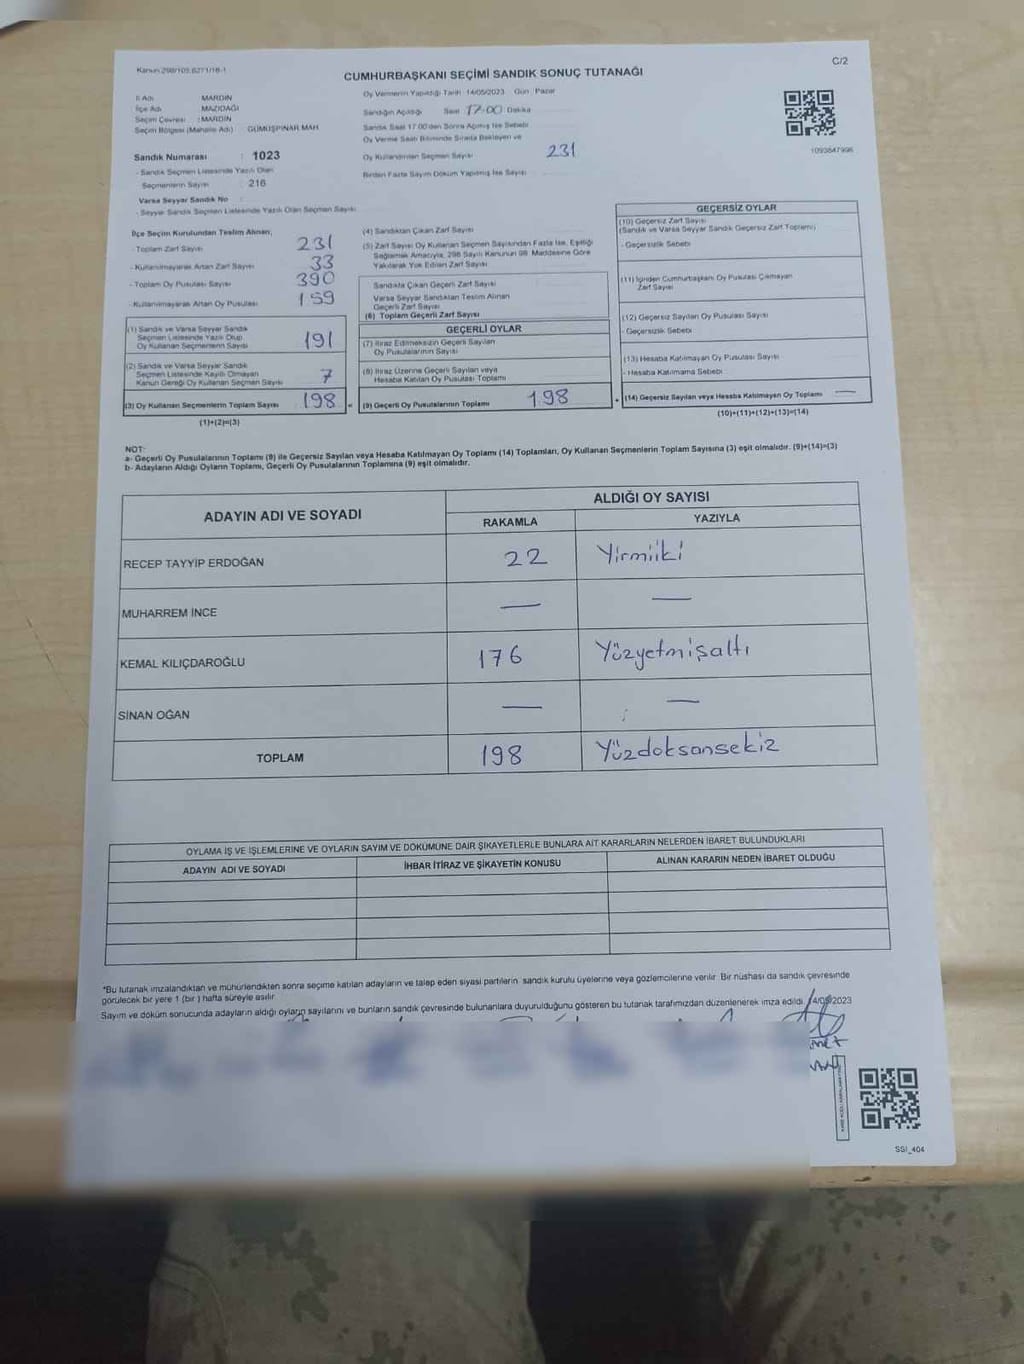 Kanun 298/105,6271/18-1
C/2
CUMHURBAŞKANI SEÇİMİ SANDIK SONUÇ TUTANAĞI
İl Adı : MARDİN
İlçe Adı : MAZIDAĞI
Seçim Çevresi : MARDİN
Seçim Bölgesi (Mahalle Adı) GÜMÜŞPINAR MAH.
Sandık Numarası : 1023
- Sandık Seçmen Listesinde Yazılı Olan
Seçmenlerin Sayısı : 216
Varsa Seyyar Sandık No
- Seyyar Sandık Seçmen Listesinde Yazılı Olan Seçmen Sayısı
Oy Vermenin Yapıldığı Tarih 14/05/2023 Gün Pazar
Sandığın Açıldığı Saat 17:00 Dakika
Sandık Saat 17.00'den Sonra Açılmış İse Sebebi
Oy Verme Saati Bitiminde Sırada Bekleyen ve
Oy Kullandırılan Seçmen Sayısı 231
Birden Fazla Sayım Döküm Yapılmış İse Sayısı
1093847996
İlçe Seçim Kurulundan Teslim Alınan;
-Toplam Zarf Sayısı 231
- Kullanılmayarak Artan Zarf Sayısı 33
- Toplam Oy Pusulası Sayısı 390
-Kullanılmayarak Artan Oy Pusulası 159
(1) Sandık ve Varsa Seyyar Sandık
Seçmen Listesinde Yazılı Olup
Oy Kullanan Seçmen Sayısı 191
(2) Sandık ve Varsa Seyyar Sandık
Seçmen Listesinde Kayıtlı Olmayan
Kanun Gereği Oy Kullanan Seçmen Sayısı 7
(3) Oy Kullanan Seçmenlerin Toplam Sayısı 198 =
(1)+(2)=(3)
(4) Sandıktan Çıkan Zarf Sayısı
(5) Zarf Sayısı Oy Kullanan Seçmen Sayısından Fazla İse, Eşitliği
Sağlamak Amacıyla, 298 Sayılı Kanunun 98. Maddesine Göre
Yakılarak Yok Edilen Zarf Sayısı
Sandıkta Çıkan Geçerli Zarf Sayısı
Varsa Seyyar Sandıktan Teslim Alınan
Geçerli Zarf Sayısı
(6) Toplam Geçerli Zarf Sayısı
GEÇERLİ OYLAR
(7) İtiraz Edilmeksizin Geçerli Sayılan
Oy Pusulalarının Sayısı
(8) İtiraz Üzerine Geçerli Sayılan veya
Hesaba Katılan Oy Pusulası Toplamı
(9) Geçerli Oy Pusulalarının Toplamı 198 +
GEÇERSİZ OYLAR
(10) Geçersiz Zarf Sayısı
(Sandık ve Varsa Seyyar Sandık Geçersiz Zarf Toplamı)
- Geçersizlik Sebebi
(11) İçinden Cumhurbaşkanı Oy Pusulası Çıkmayan
Zarf Sayısı
(12) Geçersiz Sayılan Oy Pusulası Sayısı
- Geçersizlik Sebebi
(13) Hesaba Katılmayan Oy Pusulası Sayısı
- Hesaba Katılmama Sebebi
(14) Geçersiz Sayılan veya Hesaba Katılmayan Oy Toplamı —
(10)+(11)+(12)+(13)=(14)
NOT:
a- Geçerli Oy Pusulalarının Toplamı (9) ile Geçersiz Sayılan veya Hesaba Katılmayan Oy Toplamı (14) Toplamları, Oy Kullanan Seçmenlerin Toplam Sayısına (3) eşit olmalıdır. (9)+(14)=(3)
b- Adayların Aldığı Oyların Toplamı, Geçerli Oy Pusulalarının Toplamına (9) eşit olmalıdır.
ADAYIN ADI VE SOYADI
ALDIĞI OY SAYISI
RAKAMLA YAZIYLA
RECEP TAYYİP ERDOĞAN 22 Yirmiiki
MUHARREM İNCE — —
KEMAL KILIÇDAROĞLU 176 Yüzyetmişaltı
SİNAN OĞAN — —
TOPLAM 198 Yüzdoksansekiz
OYLAMA İŞ VE İŞLEMLERİNE VE OYLARIN SAYIM VE DÖKÜMÜNE DAİR ŞİKAYETLERLE BUNLARA AİT KARARLARIN NELERDEN İBARET BULUNDUKLARI
ADAYIN ADI VE SOYADI İHBAR İTİRAZ VE ŞİKAYETİN KONUSU ALINAN KARARIN NEDEN İBARET OLDUĞU
*Bu tutanak imzalandıktan ve mühürlendikten sonra seçime katılan adayların ve talep eden siyasi partilerin sandık kurulu üyelerine veya gözlemcilerine verilir. Bir nüshası da sandık çevresinde
görülecek bir yere 1 (bir) hafta süreyle asılır.
Sayım ve döküm sonucunda adayların aldığı oyların sayılarını ve bunların sandık çevresinde bulunanlara duyurulduğunu gösteren bu tutanak tarafımızdan düzenlenerek imza edildi.
SGI_404